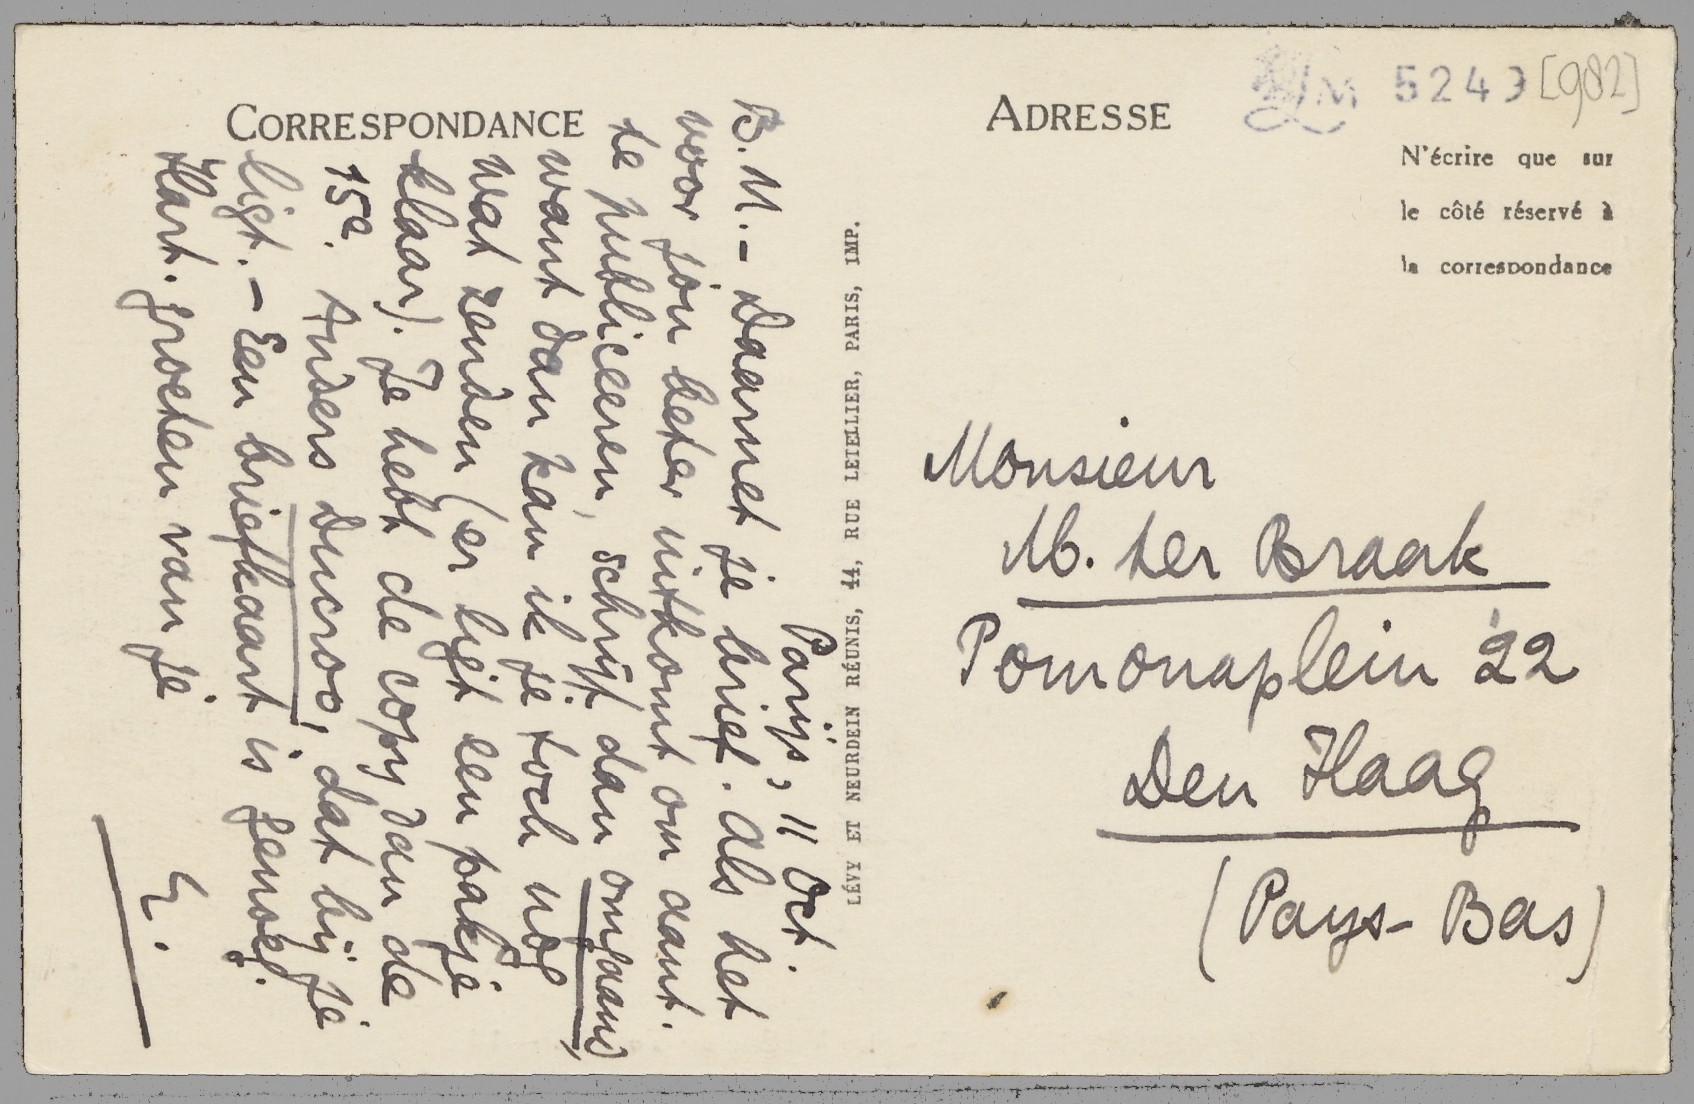 CORRESPONDANCE
Parijs, 11 Oct.
B.M. – Daarnet je brief. Als het
voor jou beter uitkomt om aant.
te publiceeren, schrijf dan omgaand,
want dan kan ik je toch nog
wat zenden (er ligt een pakje
klaar). Je hebt de copy dan de
15e. Anders Ducroo, dat bij je
ligt. – Een briefkaart is genoeg.
Hart. groeten van je
E.
LÉVY ET NEURDEIN RÉUNIS, 44, RUE LETELLIER, PARIS, IMP.
ADRESSE
LM 5243 [982]
N'écrire que sur
le côté réservé à
la correspondance
Monsieur
M. ter Braak
Pomonaplein 22
Den Haag
(Pays-Bas)